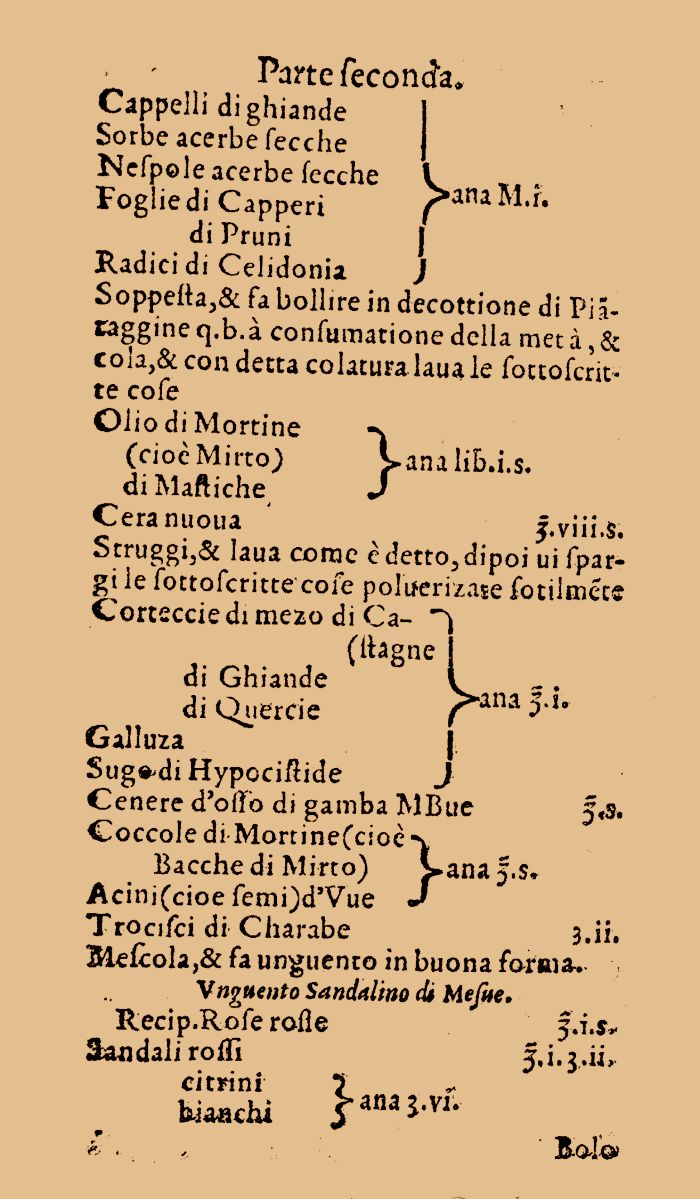 Parte ſeconda.
Cappelli di ghiande
Sorbe acerbe ſecche
Neſpole acerbe ſecche
Foglie di Capperi } ana M.i.
di Pruni
Radici di Celidonia
Soppeſta,& fa bollire in decottione di Piã-
taggine q.b.à conſumatione della metà,&
cola,& con detta colatura laua le ſottoſcrit-
te coſe
Olio di Mortine
(cioè Mirto) } ana lib.i.s.
di Maſtiche
Cera nuoua ℥.viii.s.
Struggi,& laua come è detto,dipoi ui ſpar-
gi le ſottoſcritte coſe poluerizate ſotilmẽte
Corteccie di mezo di Ca-
(ſtagne
di Ghiande
di Quercie } ana ℥.i.
Galluza
Sugo di Hypociſtide
Cenere d'oſſo di gamba MBue ℥.s.
Coccole di Mortine(cioè
Bacche di Mirto) } ana ℥.s.
Acini(cioe ſemi)d'Vue
Trociſci di Charabe ʒ.ii.
Meſcola,& fa unguento in buona forma.
Vnguento Sandalino di Meſue.
Recip.Roſe roſſe ℥.i.s.
Sandali roſſi ℥.i.ʒ.ii.
citrini
bianchi } ana ʒ.vi.
Bolo